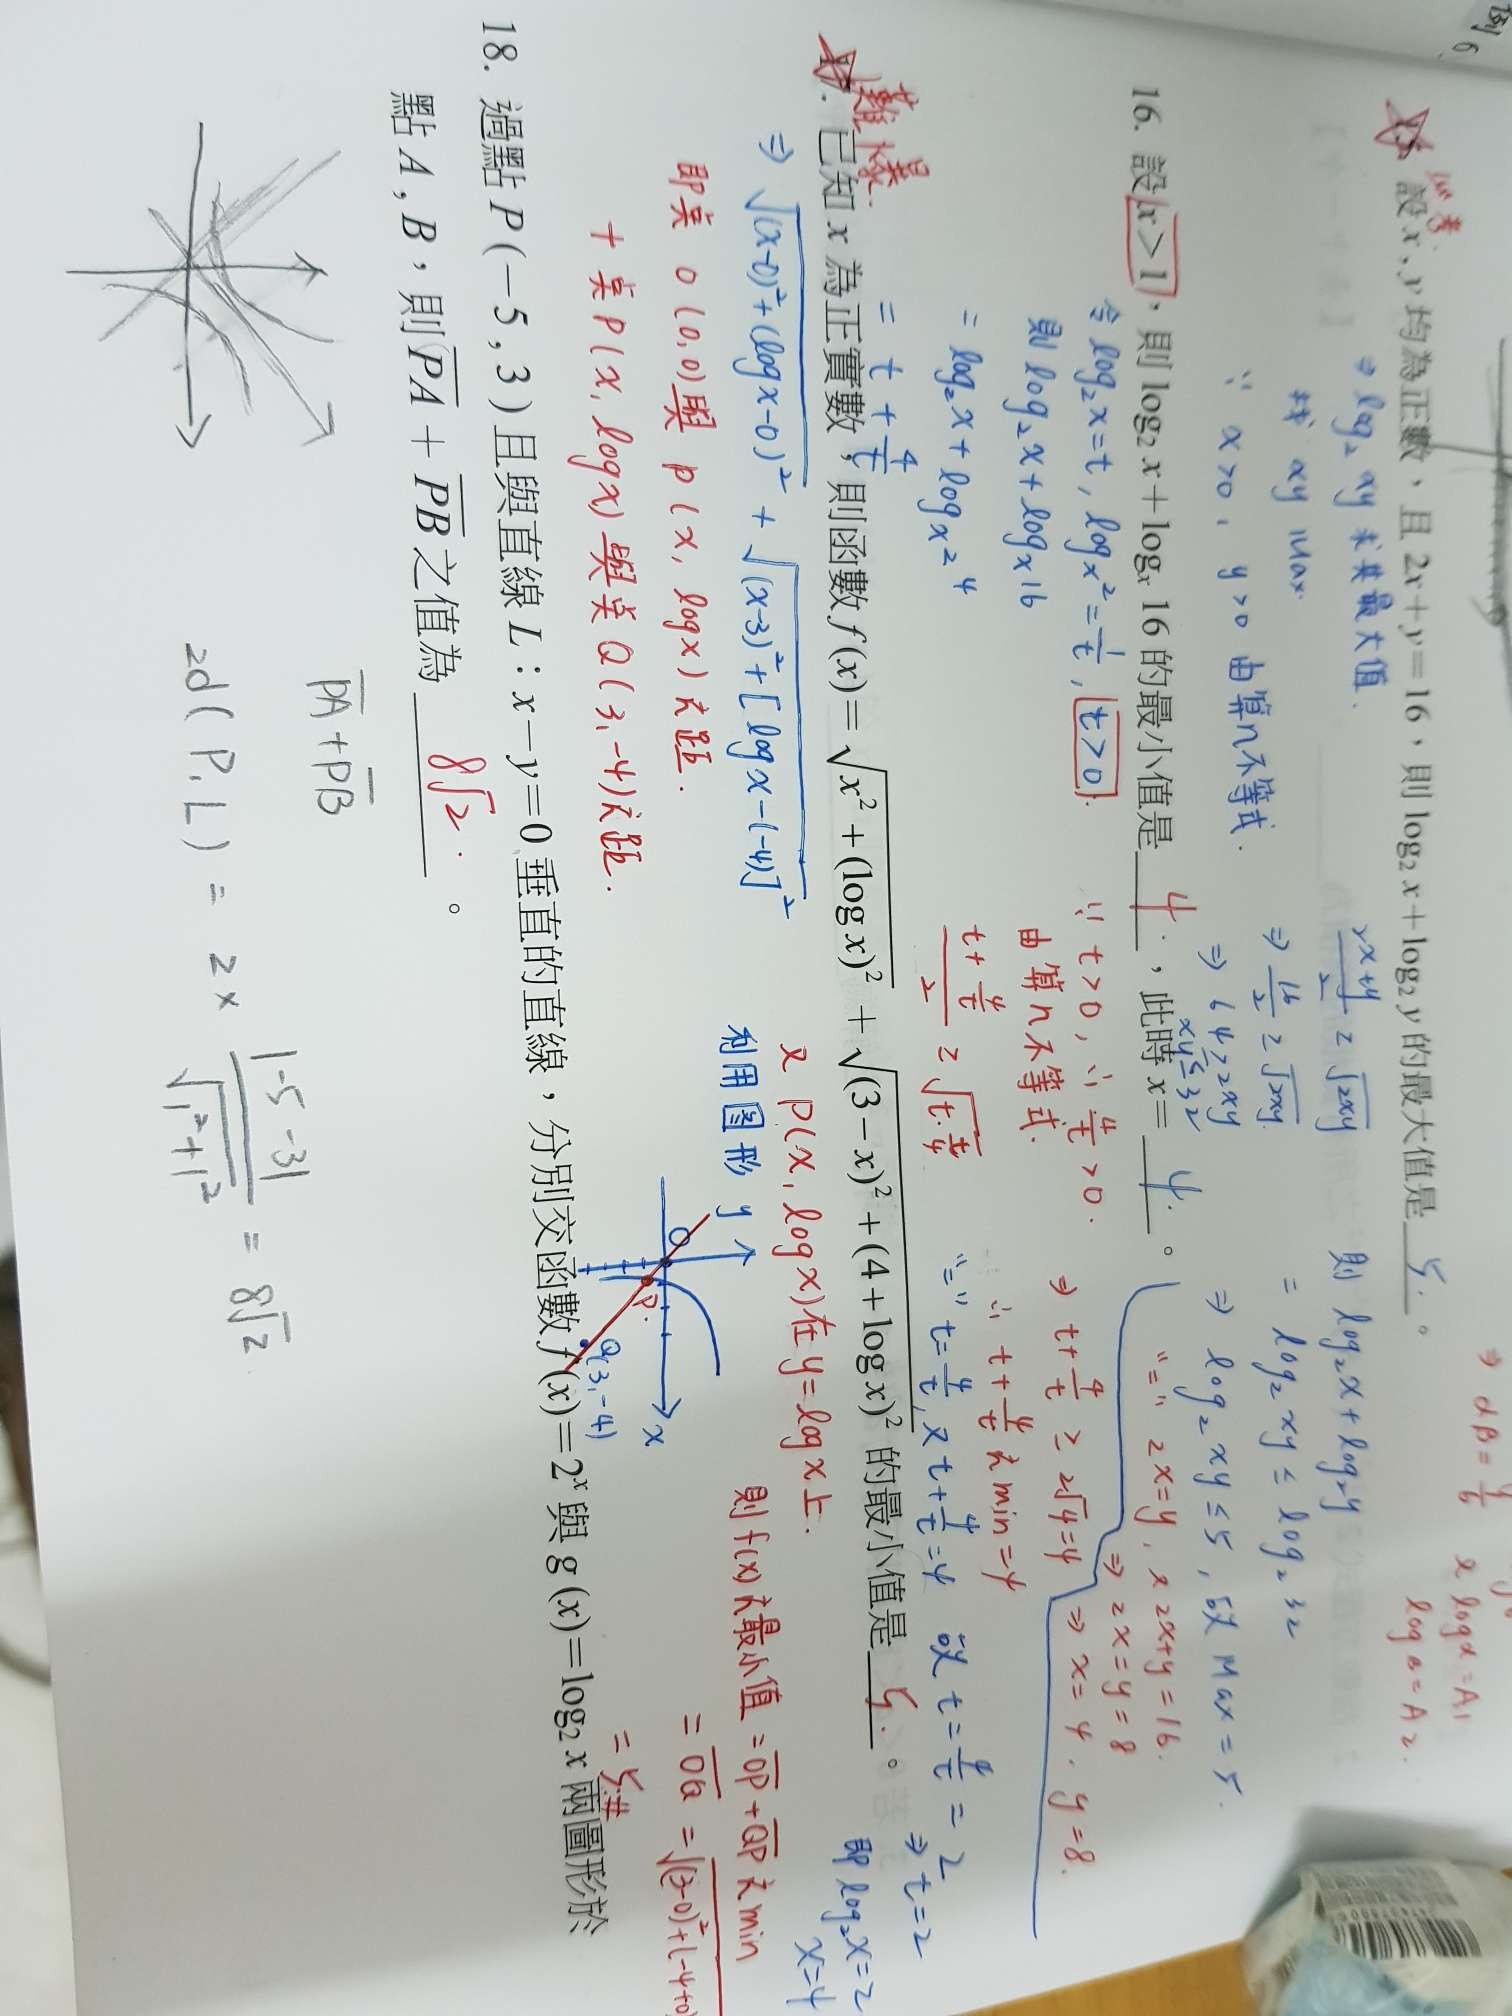 必考
設 x, y 均為正數，且 2x+y=16，則 log₂ x+log₂ y 的最大值是 5. 。
⇒ log₂ xy 求其最大值.
xy Max.
∵ x>0, y>0 由算n不等式.
(2x+y)/2 ≥ √(2xy)
⇒ 16/2 ≥ √(2xy)
⇒ 64 ≥ 2xy
xy ≤ 32
則 log₂x+log₂y
= log₂ xy ≤ log₂ 32
⇒ log₂ xy ≤ 5, 故 Max = 5.
"=" 2x=y, 又 2x+y=16.
⇒ 2x=y=8
⇒ x=4, y=8.
16. 設 x>1，則 log₂ x+logₓ 16 的最小值是 4. ，此時 x= 4. 。
令 log₂x=t, logₓ2=1/t, t>0.
則 log₂x+logₓ16
= log₂x+logₓ2⁴
= t + 4/t
∵ t>0, ∴ 4/t >0.
由算n不等式.
(t+4/t)/2 ≥ √(t·4/t)
⇒ t+4/t ≥ 2√4=4
∴ t+4/t 之min=4
"=" t=4/t, 又 t+4/t=4 故 t=4/t=2
⇒ t=2
即 log₂x=2
x=4
難 爆.
已知 x 為正實數，則函數 f(x)=√(x²+(log x)²)+√((3−x)²+(4+log x)²) 的最小值是 5. 。
⇒ √((x-0)²+(log x-0)²) + √((x-3)²+[log x-(-4)]²)
即點 O(0,0)與 P(x, log x)之距.
+ 點P(x, log x)與點Q(3,-4)之距.
又 P(x, log x)在 y=log x上.
利用圖形
y
x
O
P.
Q(3,-4)
則 f(x)之最小值=OP+QP之min
=OQ=√((3-0)²+(-4+0)
=5#
18. 過點 P(−5,3) 且與直線 L：x−y=0 垂直的直線，分別交函數 f(x)=2ˣ 與 g(x)=log₂ x 兩圖形於
點 A, B，則 PA+PB 之值為 8√2. 。
PA+PB
2d(P,L) = 2× |-5-3|/√(1²+1²) = 8√2